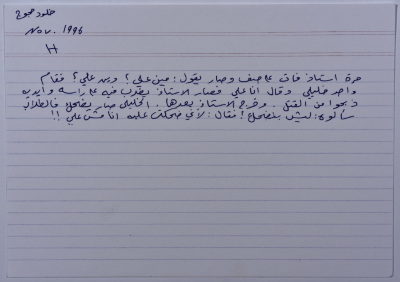 خلود حجوج
Nov. 1996
H
مرة استاذ فات عاصف وصار يقول: مين علي؟ وين علي؟ فقام
واحد خليلي وقال انا علي فصار الاستاذ يضرب فيه عا راسه وايديه
من القتل. وخرج الاستاذ بعدها. الخليلي صار يضحك فالطلاب
سألوه: ليش بتضحك؟ فقال: لأني ضحكت عليه انا مش علي !!